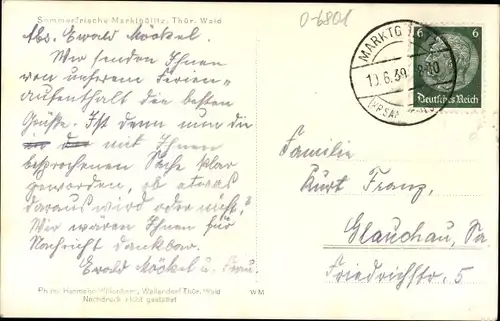 Sommerfrische Marktgölitz, Thür. Wald
O-6801
Abs. Ewald Möckel.
Wir senden Ihnen
von unserem Ferien-
aufenthalt die besten
Grüße. Ist denn nun die
mit Ihnen
besprochenen Sache klar
geworden, ob etwas
daraus wird oder nicht?
Wir wären Ihnen für
Nachricht dankbar.
Ewald Möckel u. Frau.
Wallendorf Thür. Wald
Nachdruck nicht gestattet
W M
MARKTG
10.6.39
6
6
Deutsches Reich
Familie
Kurt Franz,
Glauchau, Sa
Friedrichstr. 5